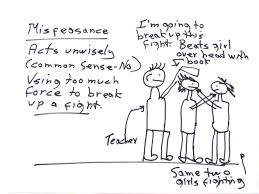 Misfeasance
Acts unwisely
(common Sense-No)
Using too much
Force to break
up a fight.
I'm going to
break up this
fight.
Beats girl
over head with
book
Teacher
Same two
girls fighting